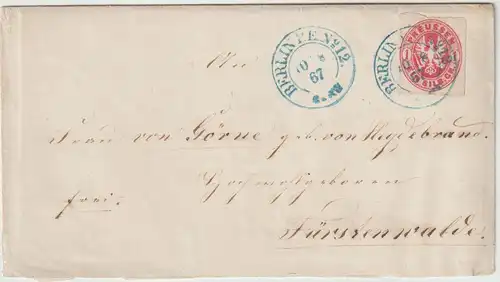 BERLIN P.E. No 12.
67
BERLIN
PREUSSEN
1
SILB.GR.
An
Frau von Görne geb. von Heydebrand
Hochwohlgeboren
frei.
Fürstenwalde.